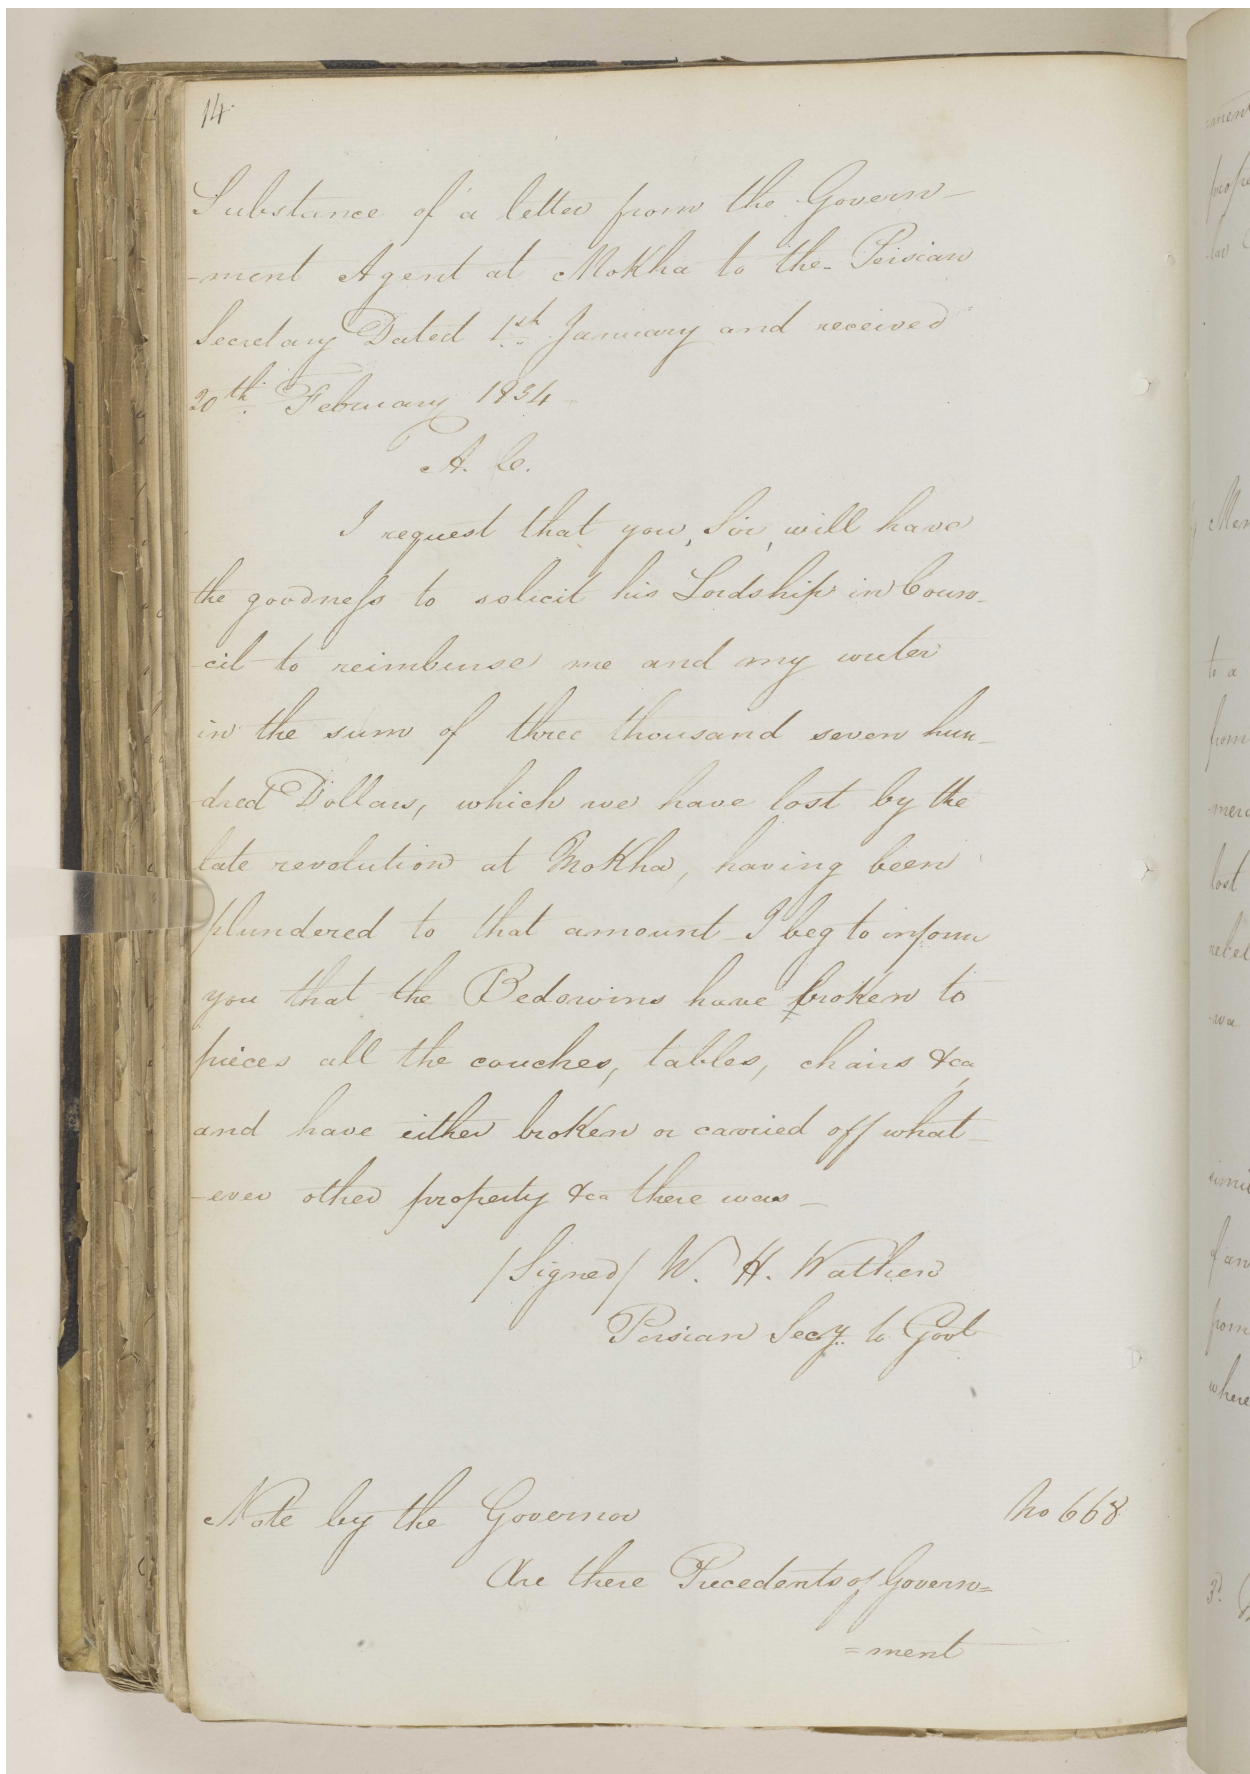 14.
Substance of a letter from the Govern-
-ment Agent at Mokha to the Persian
Secretary Dated 1st January and received
20th February 1834
A. C.
I request that you, Sir, will have
the goodness to solicit his Lordship in Coun-
-cil to reimburse me and my writer
in the sum of three thousand seven hun-
-dred Dollars, which we have lost by the
late revolution at Mokha, having been
plundered to that amount - I beg to inform
you that the Bedowins have broken to
pieces all the couches, tables, chairs &ca
and have either broken or carried off what-
-ever other property &ca there was -
/Signed/ W. H. Wathen
Persian Secy. to Govt
Note by the Governor No 668
Are there Precedents of Govern=
=ment